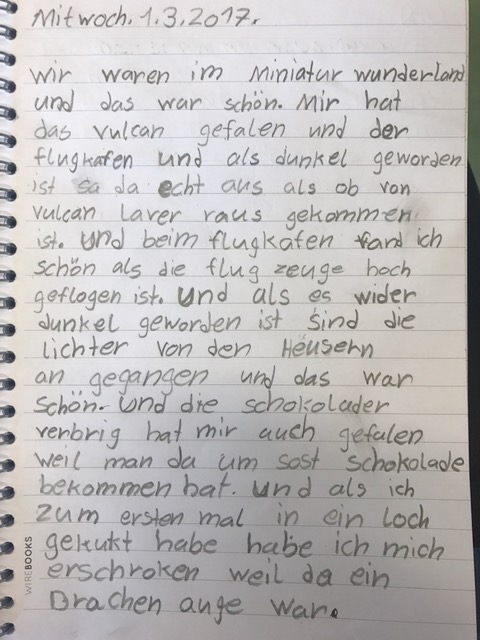 Mitwoch. 1.3.2017.
wir waren im Miniatur wunderland
und das war schön. Mir hat
das vulcan gefalen und der
flugkafen und als dunkel geworden
ist sa da echt aus als ob von
vulcan laver raus gekommen
ist. und beim flugkafen fand ich
schön als die flug zeuge hoch
geflogen ist. und als es wider
dunkel geworden ist sind die
lichter von den Heusern
an gegangen und das war
schön. und die schokolader
verbrig hat mir auch gefalen
weil man da um sost schokolade
bekommen hat. und als ich
zum ersten mal in ein loch
gekukt habe habe ich mich
erschroken weil da ein
Drachen auge war.
WIREBOOKS